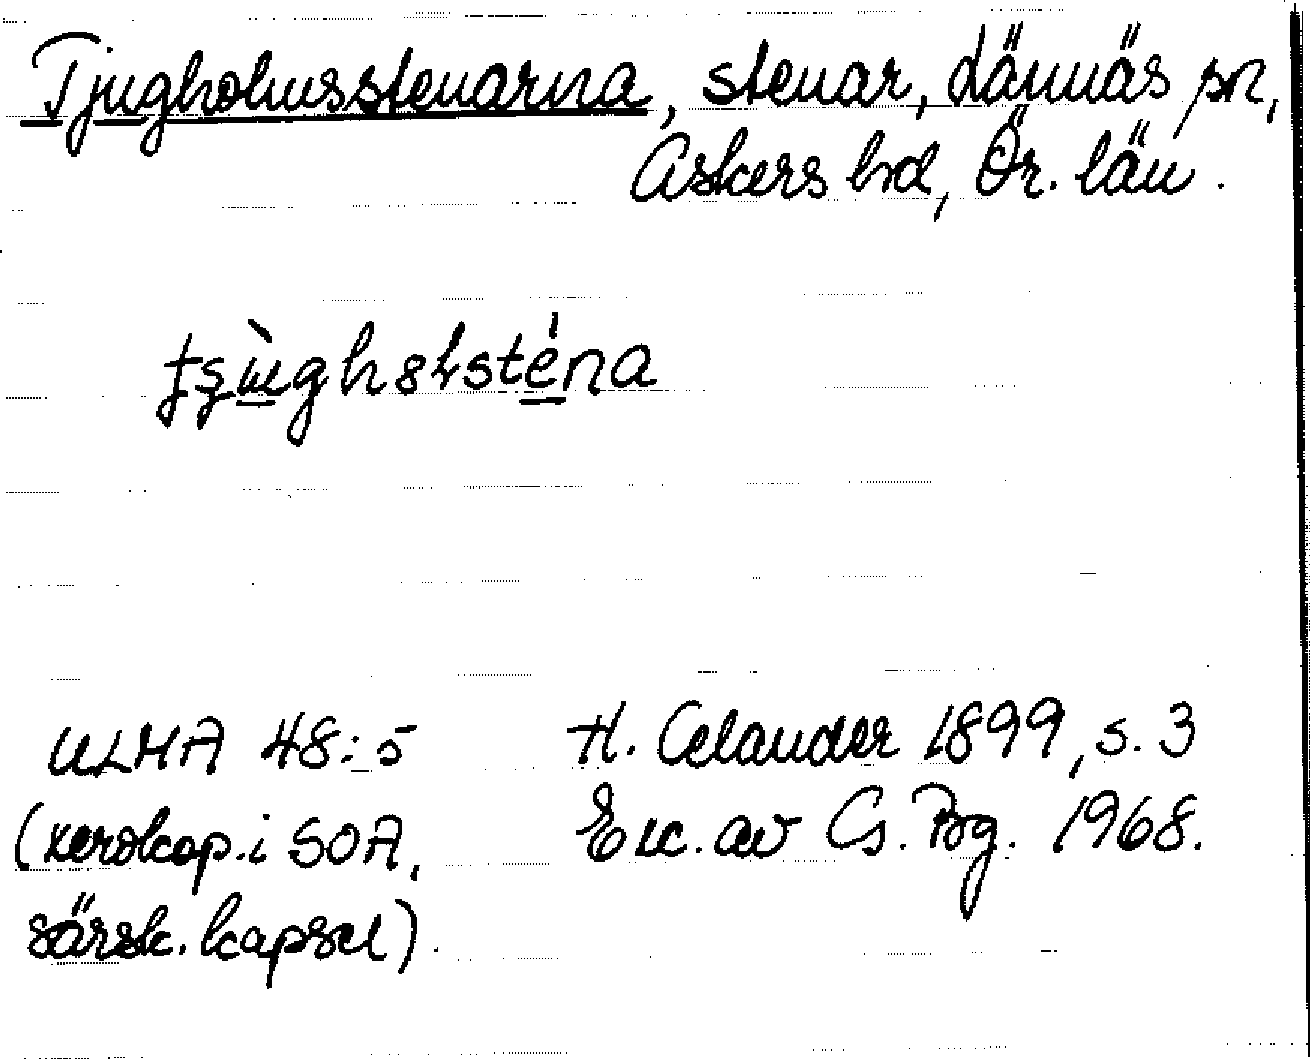 Tjugholmsstenarna, stenar, Lännäs sn,
Askers hd, Ör. län.
ULMA 48:5 H. Celander 1899, s. 3
(xeroxkop. i SOA, Exc. av G. Bg. 1968.
särsk. kapsel).